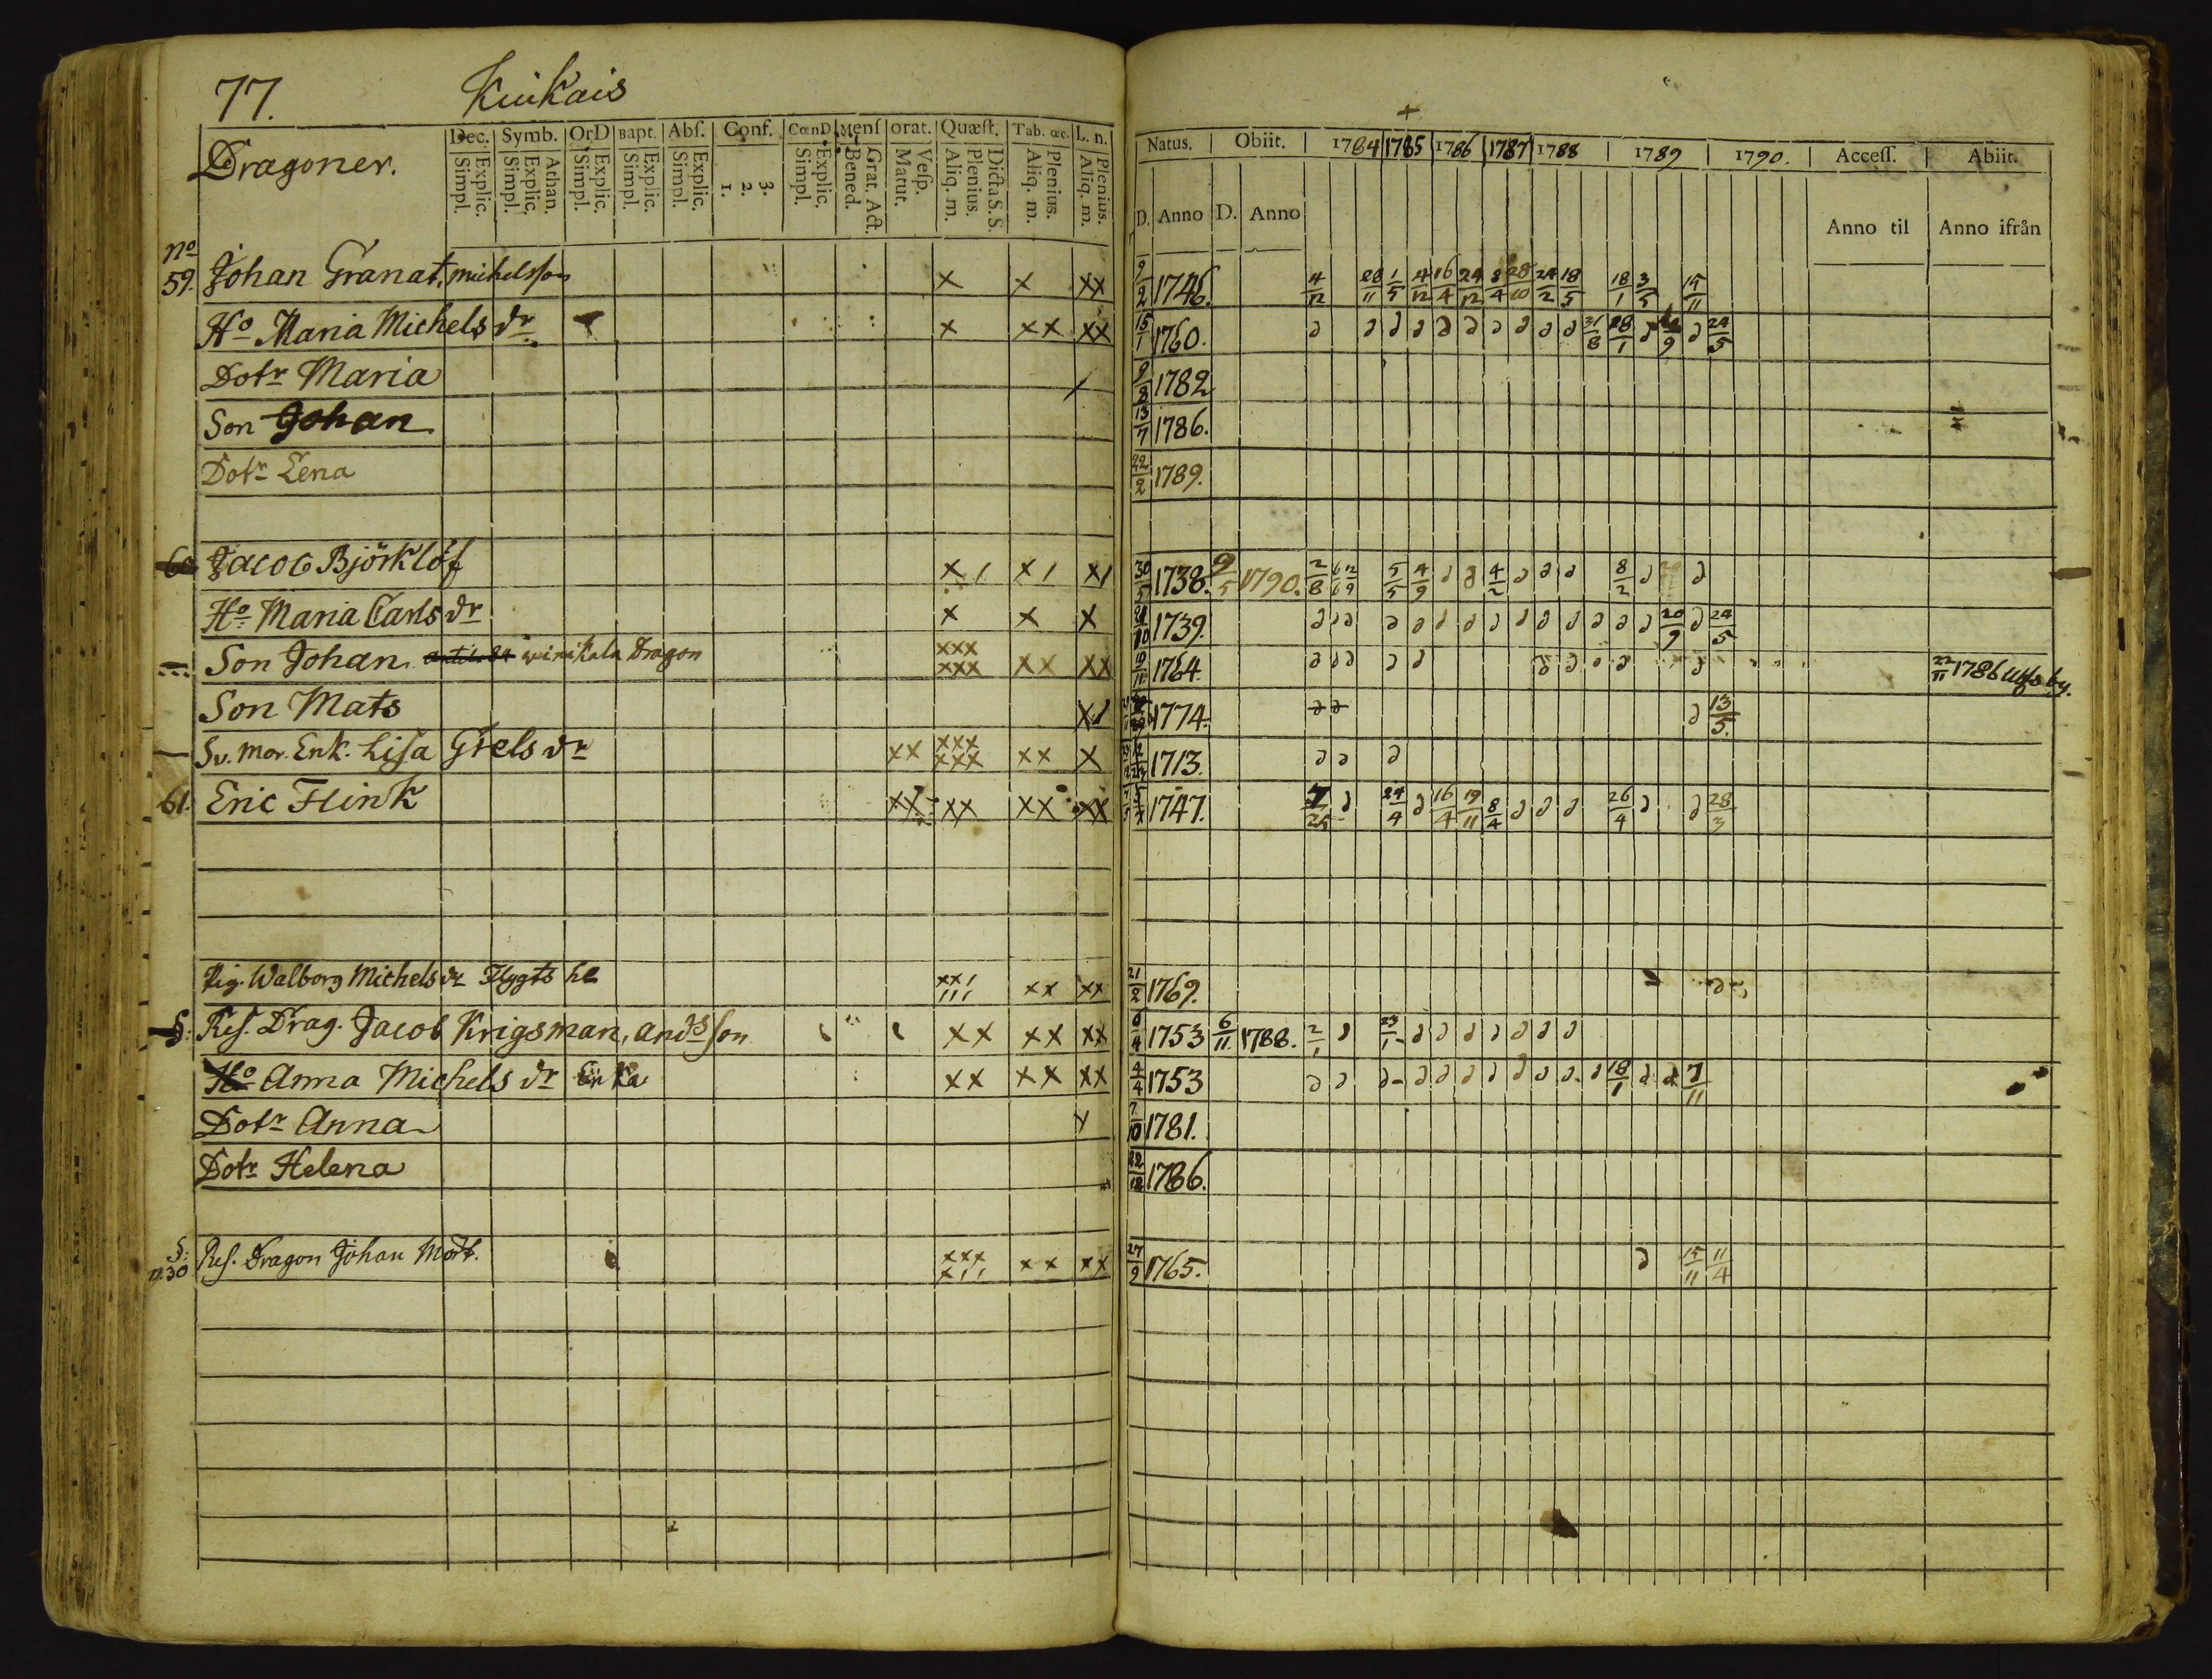 77. Kuikais
Dec. Symb. OrD Bapt. Abſ. Conf. CœnD Menſ orat. Quæſt. Tab. œc. L. n.
Dragoner. Explic. Simpl. Athan. Explic. Simpl. Explic. Simpl. Explic. Simpl. Explic. Simpl. 1. 2. 3. Explic. Simpl. Grat. Act. Bened. Veſp. Matut. Dicta S. S. Plenius. Aliq. m. Plenius. Aliq. m. Plenius. Aliq. m.
No
59. Johan Granat, michelsson x x xx
Ho Maria Michels dr x xx xx
Dotr Maria
Son Johan
Dotr Lena
60 Jacob Björklöf x/ x/ x/
Ho Maria Carls dr x x x
Son Johan winikala Dragon xxx xxx xx xx
Son Mats
Sv. Mor. Enk. Lisa Grels dr xx xxx xxx xx x
61. Eric Flink xx xx xx xx
Pig. Walborg Michels dr Flygts xx/ /// xx xx
Res. Drag. Jacob Krigsman, andsson xx xx xx
Ho Anna Michels dr Enka xx xx xx
Dotr Anna
Dotr Helena
Res. Dragon Johan Mört. xxx x// xx xx
Natus. Obiit. 1784 1785 1786 1787 1788 1789 1790. Acceſſ. Abiit.
D. Anno D. Anno Anno til Anno ifrån
9/2 1746. 4/12 28/11 1/5 4/12 16/4 24/12 8/4 28/10 24/2 18/5 18/1 3/5 15/11
15/1 1760. 31/8 28/1 24/5
9/8 1782
13/7 1786.
22/2 1789.
30/5 1738. 9/5 1790. 2/8 5/5 4/9 4/2 8/2
1739. 20/9 24/5
1764. 22/11 1786 by.
1774. 13/5.
1713.
1747. 24/4 16/4 19/11 8/4 26/4 28/3
21/2 1769.
6/4 1753 6/11 1788. 2/1 23/1
4/4 1753 18/1 7/11
7/10 1781.
22/12 1786.
27/9 1765. 15/11 11/4